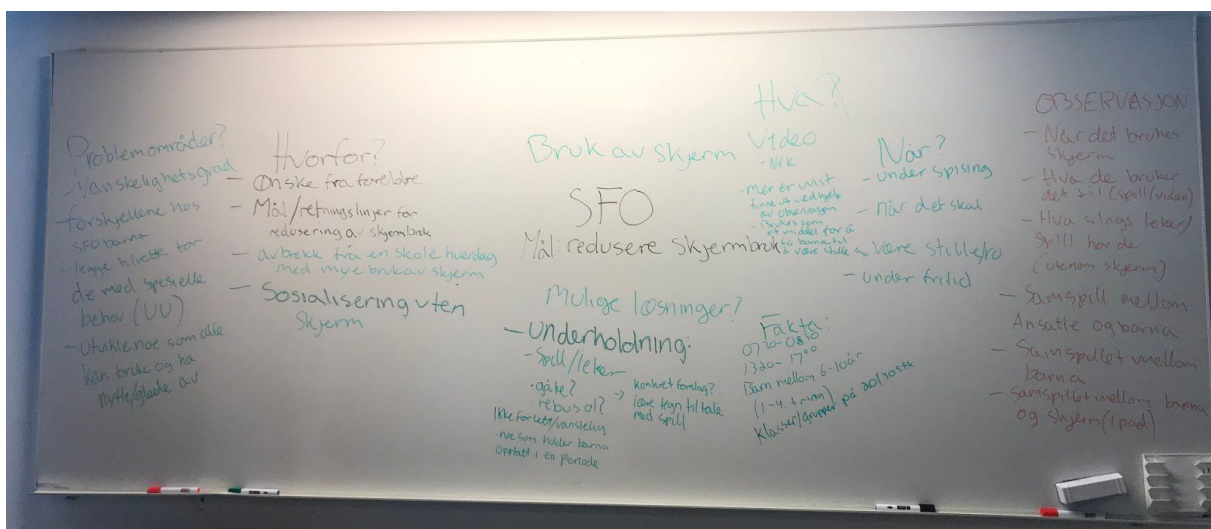 Problemområder?
- Vanskelighetsgrad
- forskjellene hos
SFO barna
- legge til rette for
de med spesielle
behov (UU)
- Utvikle noe som alle
kan bruke og ha
nytte/glede av
Hvorfor?
- Ønske fra foreldre
- Mål/retningslinjer for
redusering av skjermbruk
- avbrekk fra en skolehverdag
med mye bruk av skjerm
- Sosialisering uten
skjerm
Bruk av skjerm
SFO
Mål: redusere skjermbruk
Mulige løsninger?
- Underholdning:
- Spill/leker
• gåte?
• rebus ol?
Ikke for lett/vanskelig
• noe som holder barna
Opptatt i en periode
→ konkret forslag?
lære tegn til tale
med spill
Hva?
Video
- Nrk
- mer er
finne ut ved hjelp
av
- Brukes som
et middel for å
få barna til
å være stille
Fakta:
07:30-0830
1320-1700
Barn mellom 6-10 år
(1.-4. trinn)
Klasser/grupper på 20/30 stk
Når?
- under spising
- når det skal
være stille/ro
- under fritid
OBSERVASJON
- Når det brukes
skjerm
- Hva de bruker
det til (spill/video)
- Hva slags leker/
spill har de
(utenom skjerm)
- Samspill mellom
Ansatte og barna
- Samspillet mellom
barna
- samspillet mellom barna
og skjerm (ipad)